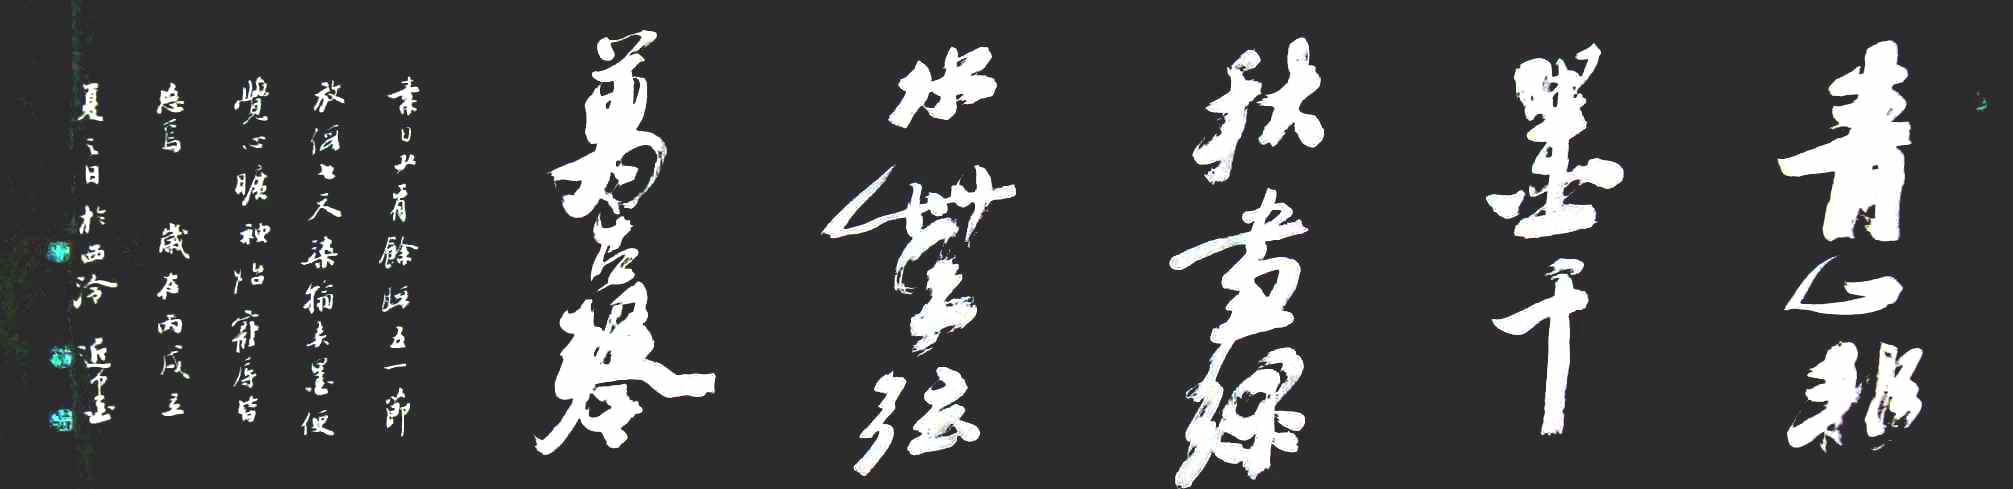 青山不
墨千
秋畫綠
水無弦
萬古琴
素日少有餘暇五一節
放假七天染翰弄墨便
覺心曠神怡寵辱皆
忘焉 歲在丙戌立
夏之日於西泠